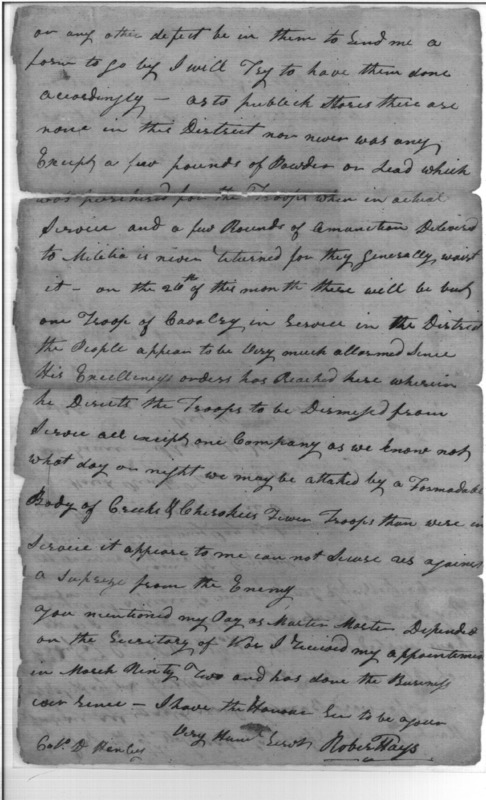 or any other defect be in them to Send me a
form to go by I will Try to have them done
accordingly — as to publick Stores there are
none in this District nor never was any
Except a few pounds of Powder or Lead which
was purchased for the Troops when in actual
Service and a few Rounds of Amunition Delivered
to Militia is never returned for they Generally waist
it — on the 26th of this month there will be but
one Troop of Cavalry in Service in the District
the People appear to be Very much allarmed Since
His Excellencys orders has Reached here wherein
he Directs the Troops to be Dismissed from
Service all except one Company as we know not
what day or night we may be attaked by a Formadable
Body of Creeks & Cherokees Fewer Troops than were in
Service it appears to me can not Secure us against
a Suprize from the Enemy
you mentioned my Pay as Muster Master Depended
on the Secritary of War I received my appointment
in March Ninty Two and has done the Buisness
ever Since — I have the Honour Sir to be your
Very Humle Servt Robert Hays
Colo. D Henley